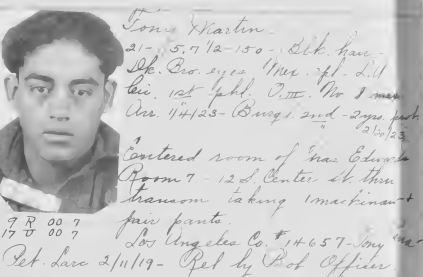 Tony Martin.
21 - 5.7 1/2 - 150 - Blk hair -
Dk. Bro. eyes
Cic. 1st phl. No 8
Arr. 1/4/23 - Burg. 2nd - 2 yrs. prob.
2/20/23
Entered room of Chas Edwards
Room 7 - 12 S. Center St. thru
transom taking 1 mackinaw +
pair pants.
9 R 00 7
17 U 00 7
Los Angeles Co. # 14657 - Tony
Pet. Larc 2/11/19 - Rel by Prob Officer